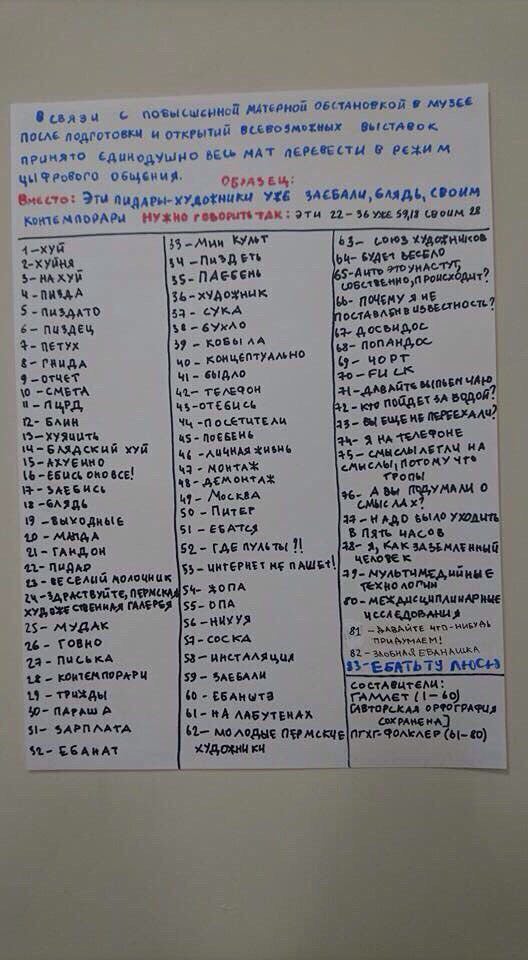 В СВЯЗИ С ПОВЫСШЕННОЙ МАТЕРНОЙ ОБСТАНОВКОЙ В МУЗЕЕ
ПОСЛЕ ПОДГОТОВКИ И ОТКРЫТИЙ ВСЕВОЗМОЖНЫХ ВЫСТАВОК
ПРИНЯТО ЕДИНОДУШНО ВЕСЬ МАТ ПЕРЕВЕСТИ В РЕЖИМ
ЦЫФРОВОГО ОБЩЕНИЯ. ОБРАЗЕЦ:
ВМЕСТО: ЭТИ ПИДАРЫ-ХУДОЖНИКИ УЖЕ ЗАЕБАЛИ, БЛЯДЬ, СВОИМ
КОНТЕМПОРАРИ НУЖНО ГОВОРИТЬ ТАК: ЭТИ 22-36 УЖЕ 59,18 СВОИМ 28
1-ХУЙ
2-ХУЙНЯ
3-НАХУЙ
4-ПИЗДА
5-ПИЗДАТО
6-ПИЗДЕЦ
7-ПЕТУХ
8-ГНИДА
9-ОТЧЕТ
10-СМЕТА
11-ПЦРД
12-БЛИН
13-ХУЯЦИТЬ
14-БЛЯДСКИЙ ХУЙ
15-АХУЕННО
16-ЕБИСЬ ОНО ВСЕ!
17-ЗАЕБИСЬ
18-БЛЯДЬ
19-ВЫХОДНЫЕ
20-МАНДА
21-ГАНДОН
22-ПИДАР
23-ВЕСЕЛЫЙ МОЛОЧНИК
24-ЗДРАСТВУЙТЕ, ПЕРМСКАЯ
ХУДОЖЕСТВЕННАЯ ГАЛЕРЕЯ
25-МУДАК
26-ГОВНО
27-ПИСЬКА
28-КОНТЕМПОРАРИ
29-ТРИЖДЫ
30-ПАРАША
31-ЗАРПЛАТА
32-ЕБАНАТ
33-МИН КУЛЬТ
34-ПИЗДЕТЬ
35-ПАЕБЕНЬ
36-ХУДОЖНИК
37-СУКА
38-БУХЛО
39-КОБЫЛА
40-КОНЦЕПТУАЛЬНО
41-БЫДЛО
42-ТЕЛЕФОН
43-ОТЕБИСЬ
44-ПОСЕТИТЕЛИ
45-ПОЕБЕНЬ
46-ЛИЧНАЯ ЖИЗНЬ
47-МОНТАЖ
48-ДЕМОНТАЖ
49-МОСКВА
50-ПИТЕР
51-ЕБАТСЯ
52-ГДЕ ПУЛЬТЫ ?!
53-ИНТЕРНЕТ НЕ ПАШЕТ!
54-ЖОПА
55-ОПА
56-НИХУЯ
57-СОСКА
58-ИНСТАЛЯЦИЯ
59-ЗАЕБАЛИ
60-ЕБАНУТЭ
61-НА ЛАБУТЕНАХ
62-МОЛОДЫЕ ПЕРМСКИЕ
ХУДОЖНИКИ
63-СОЮЗ ХУДОЖНИКОВ
64-БУДЕТ ВЕСЕЛО
65-А ЧТО ЭТО У НАС ТУТ,
СОБСТВЕННО, ПРОИСХОДИТ?
66-ПОЧЕМУ Я НЕ
ПОСТАВЛЕН В ИЗВЕСТНОСТЬ?
67-ДОСВИДОС
68-ПОПАНДОС
69-ЧОРТ
70-FUCK
71-ДАВАЙТЕ ВЫПЬЕМ ЧАЮ
72-КТО ПОЙДЕТ ЗА ВОДОЙ?
73-ВЫ ЕЩЕ НЕ ПЕРЕЕХАЛИ?
74-Я НА ТЕЛЕФОНЕ
75-СМЫСЛЫ ЛЕГЛИ НА
СМЫСЛЫ, ПОТОМУ ЧТО
ТРОПЫ
76-А ВЫ ПОДУМАЛИ О
СМЫСЛАХ?
77-НАДО БЫЛО УХОДИТЬ
В ПЯТЬ ЧАСОВ
78-Я, КАК ЗАЗЕМЛЕННЫЙ
ЧЕЛОВЕК
79-МУЛЬТИМЕДИЙНЫЕ
ТЕХНОЛОГИИ
80-МЕЖДИСЦИПЛИНАРНЫЕ
ИССЛЕДОВАНИЯ
81-ДАВАЙТЕ ЧТО-НИБУДЬ
ПРИДУМАЕМ!
82-ЗЛОБНАЯ ЕБАНАШКА
83-ЕБАТЬ ТУ ЛЮСЮ
СОСТАВИТЕЛИ:
ГАМЛЕТ (1-60)
[АВТОРСКАЯ ОРФОГРАФИЯ
СОХРАНЕНА]
ПГХГ-ФОЛКЛЕР (61-80)